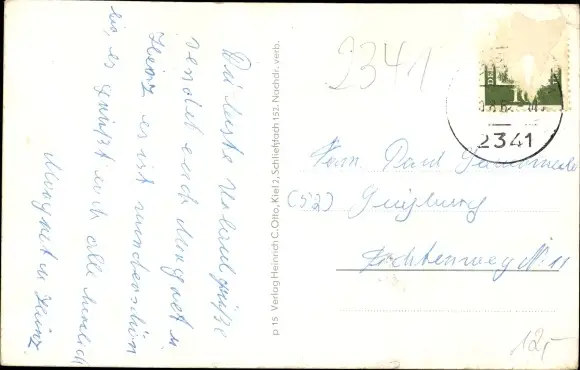 Die besten Urlaubsgrüße
sendet euch Margret u.
Heinz es ist wunderschön
hier, es grüßt euch alle herzlich
Margret u Heinz
p 15 Verlag Heinrich C. Otto, Kiel 2, Schließfach 152. Nachdr. verb.
2341
10
2341
Herrn Paul
(52)
N 11
12,-